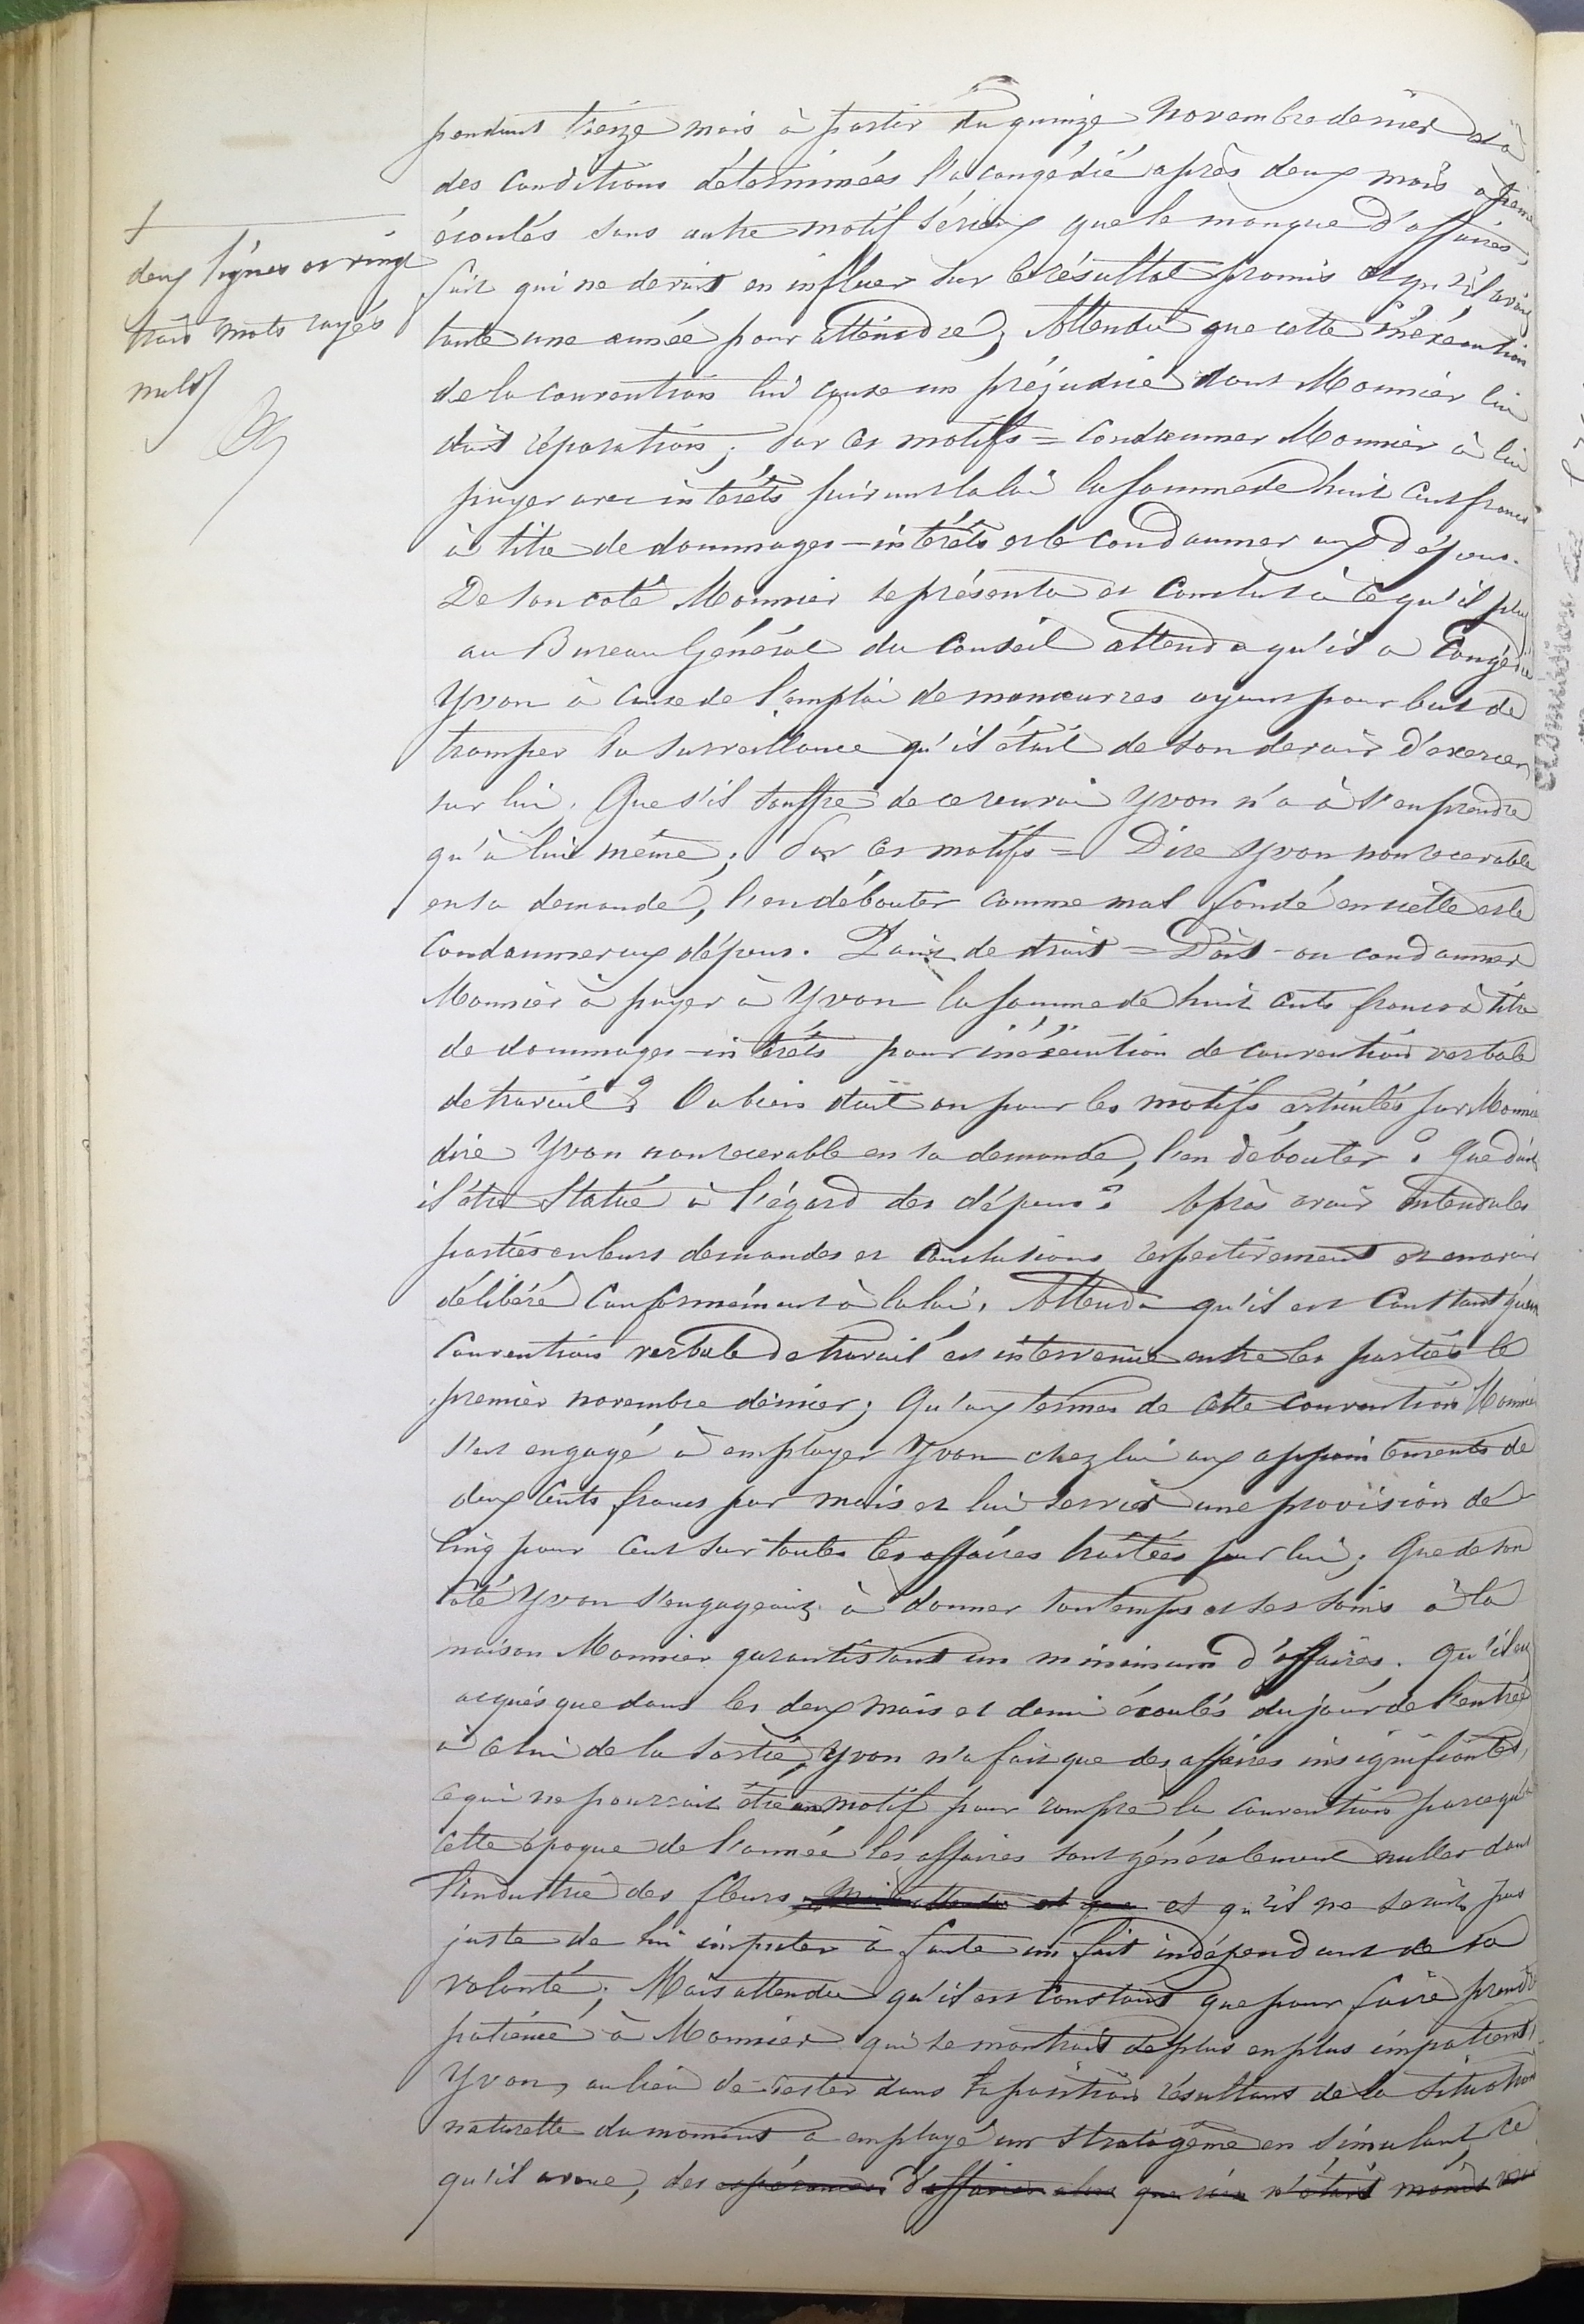 +
deux lignes et vingt
trois mots rayés
nuls
pendant treize mois à partir du quinze Novembre dernier et à
des conditions déterminées l'a congédié après deux mois à peine
écoulés sans autre motif sérieux que le manque d'affaires,
fait qui ne devait en influer sur le résultat promis et qu'il avait
toute une année pour atteindre; Attendu que cette inexécution
de la convention lui cause un préjudice dont Monnier lui
doit réparation; Par ces motifs = Condamner Monnier à lui
payer avec intérêts suivant la loi la somme de huit cents francs
à titre de dommages-intérêts et le condamner aux dépens.
De son coté Monnier se présenta et conclut à ce qu'il plut
au Bureau Général du Conseil attendu qu'il a congédié
Yvon à cause de l'emploi de manœuvres ayant pour but de
tromper la surveillance qu'il était de son devoir d'exercer
sur lui. Que s'il souffre de ce renvoi Yvon n'a à s'en prendre
qu'à lui même; Par ces motifs = Dire Yvon non recevable
en sa demande, l'en débouter comme mal fondé en icelle et le
condamner aux dépens. Point de droit = Doit-on condamner
Monnier à payer à Yvon la somme de huit cents francs à titre
de dommages-intérêts pour inéxécution de convention verbale
de travail? Ou bien doit on pour les motifs articulés par Monnier
dire Yvon non recevable en sa demande, l'en débouter? Que doit
il être statué à l'égard des dépens? Après avoir entendu les
parties en leurs demandes et conclusions respectivement et en avoir
délibéré conformément à la loi. Attendu qu'il est constant qu'une
convention verbale de travail est intervenue entre les parties le
premier novembre dernier; Qu'aux termes de cette convention Monnier
s'est engagé à employer Yvon chez lui aux appointements de
deux cents francs par mois et lui servir une provision de
cinq pour cent sur toutes les affaires traitées par lui; Que de son
coté Yvon s'engageait à donner son temps et ses soins à la
maison Monnier garantissant un minimum d'affaires. Qu'il est
acquis que dans les deux mois et demi écoulés du jour de l'entrée
à celui de la sortie, Yvon n'a fait que des affaires insignifiantes,
ce qui ne pourrait être un motif pour rompre la convention parcequ'à
cette époque de l'année les affaires sont généralement nulles dans
l'industrie des fleurs et qu'il ne serait pas
juste de lui imputer à faute un fait indépendant de sa
volonté; Mais attendu qu'il est constant que pour faire prendre
patience à Monnier qui se montrait de plus en plus impatient,
Yvon, au lieu de rester dans la position résultant de la situation
naturelle du moment a employé un stratagème en simulant, ce
qu'il avoue, des espérances d'affaires alors que rien n'était moins